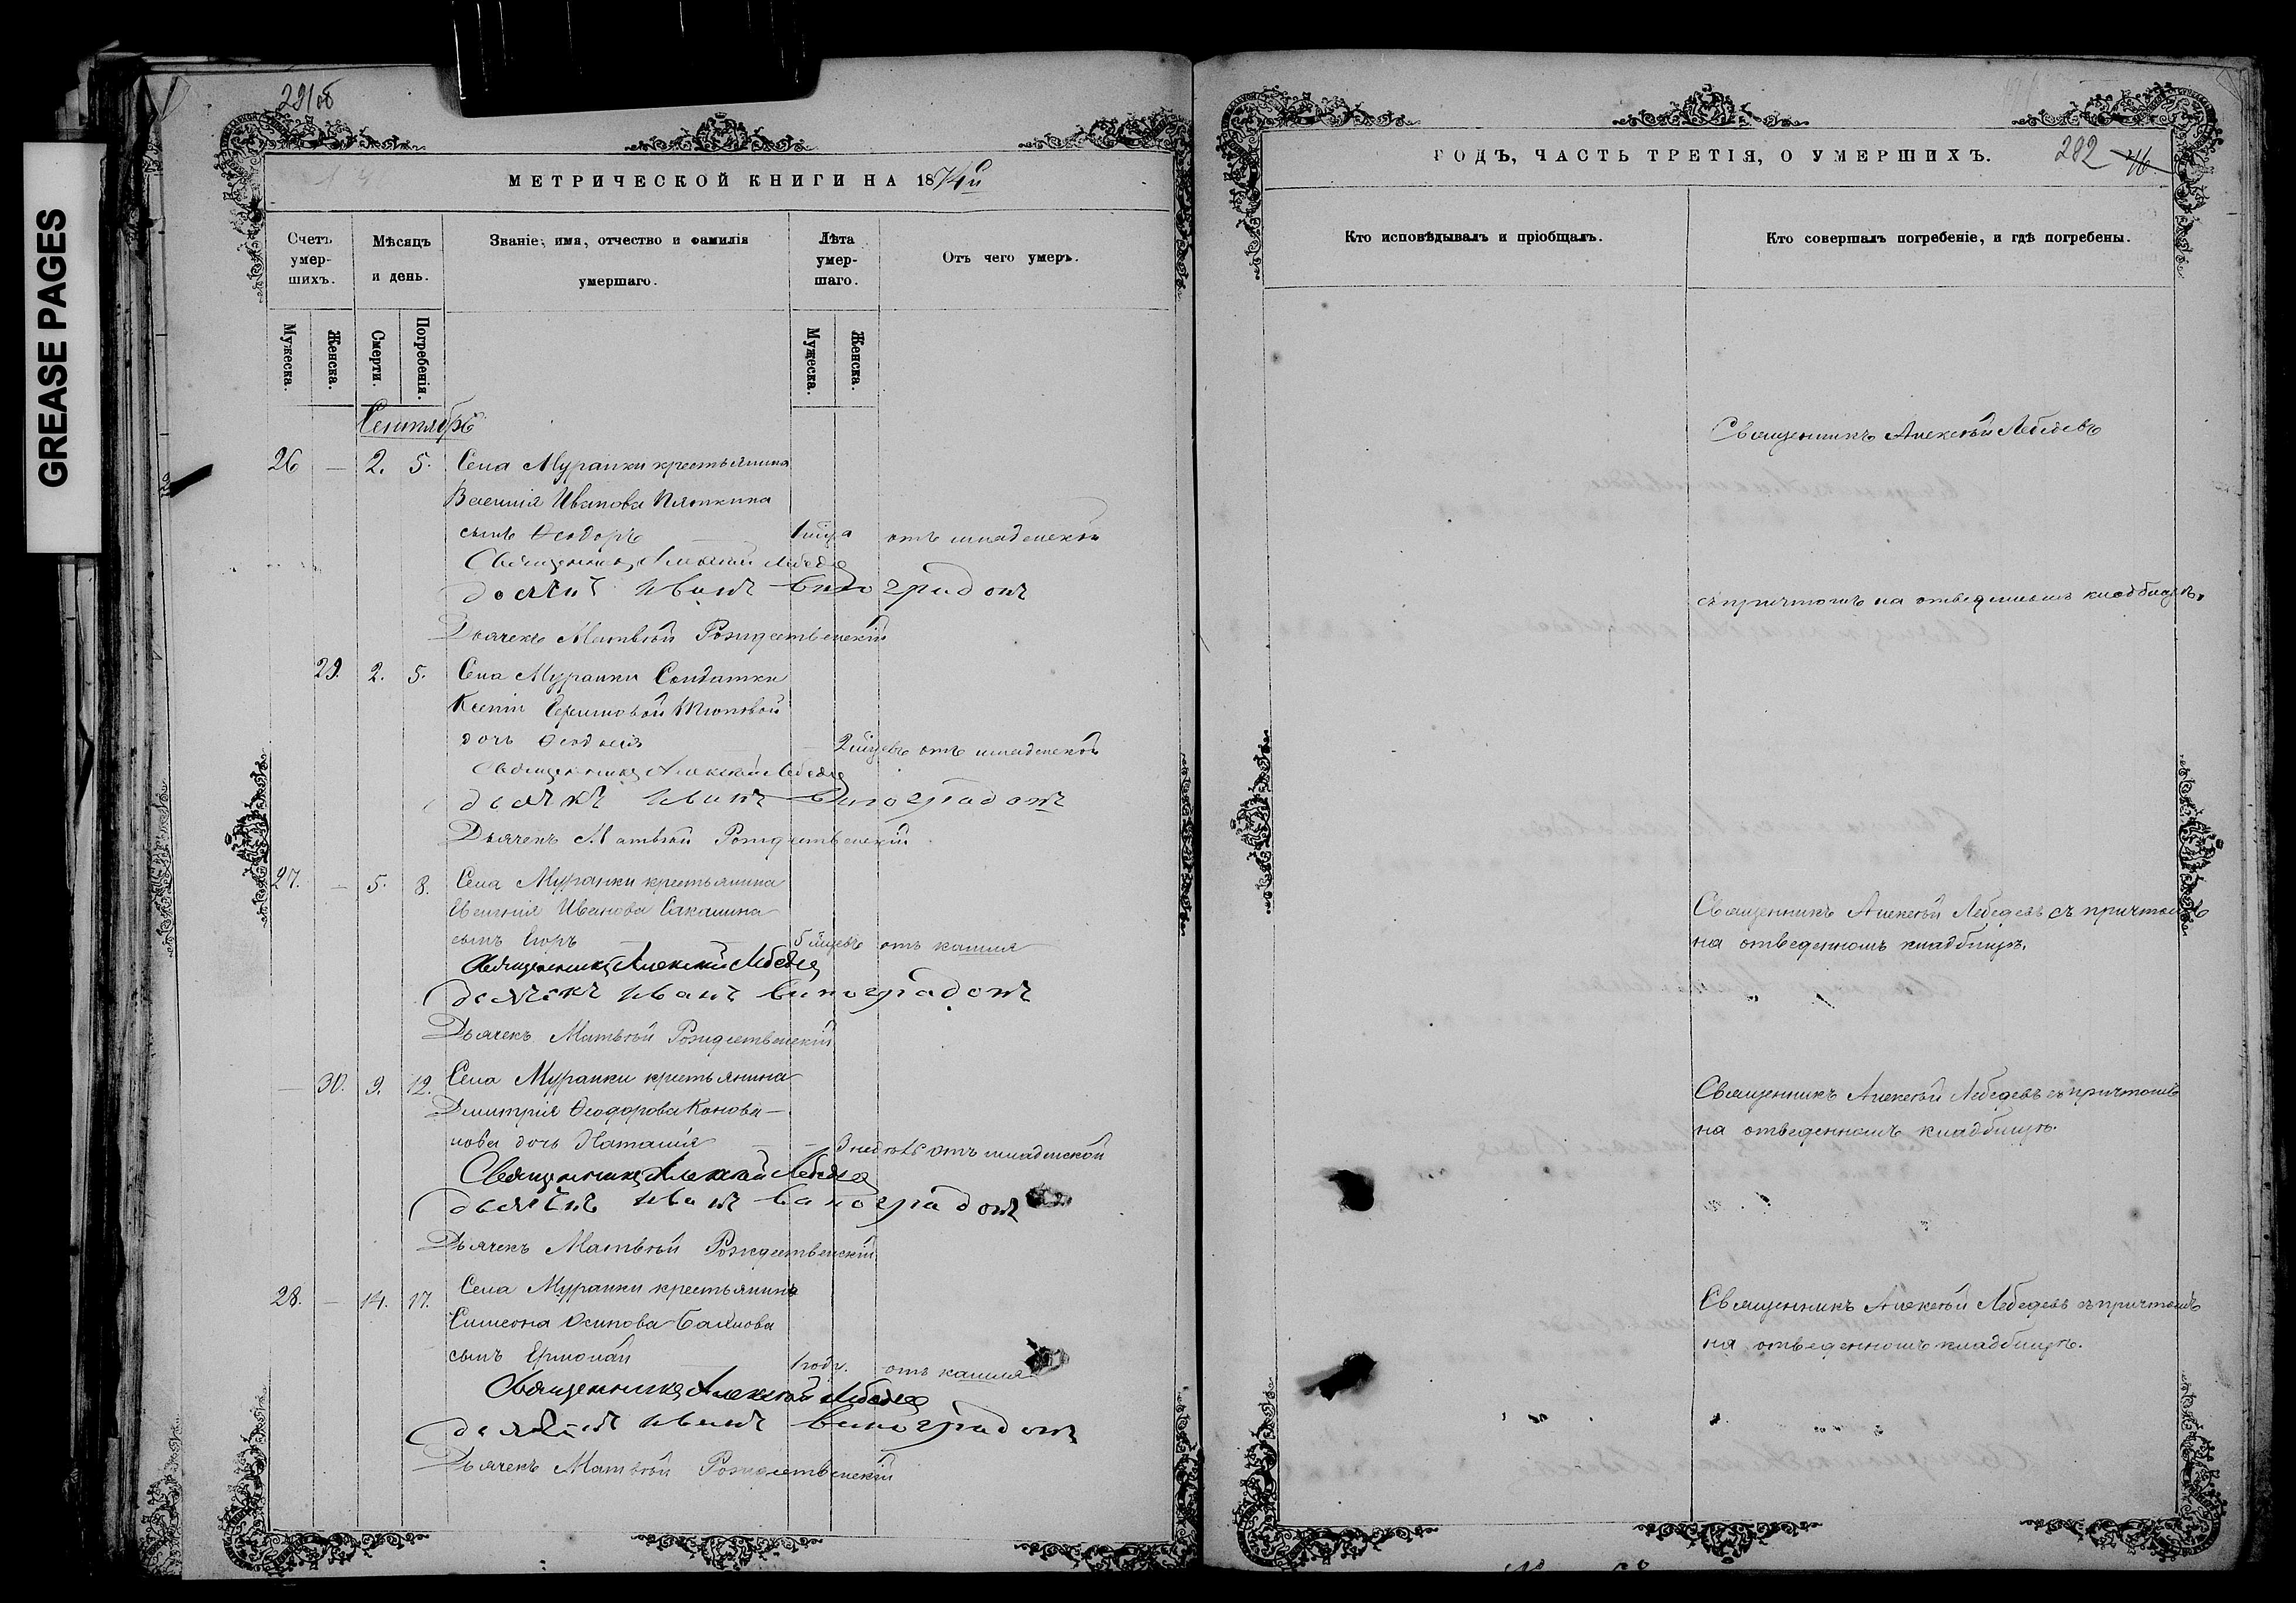 GREASE PAGES
281об
МЕТРИЧЕСКОЙ КНИГИ НА 1874й
Счетъ умер-шихъ.
Мѣсяцъ и день.
Званіе, имя, отчество и фамилія умершаго.
Лѣта умер-шаго.
Отъ чего умеръ.
Мужеска.
Женска.
Смерти.
Погребенія.
Мужеска.
Женска.
Сентябрь
26 — 2. 5. Села Муранки крестьянина
Василія Иванова Пяткина
сынъ Ѳеодоръ 1 мѣца отъ младенской
Священникъ Алексѣй Лебедев
дьячекъ Иванъ Виноградовъ
Дьячекъ Матвѣй Рождественскій
29. 2. 5. Села Муранки Солдатки
Ксеніи
дочь Ѳеодосія 2 мѣцевъ отъ младенской
Священникъ Алексѣй Лебедев
дьячекъ Иванъ Виноградовъ
Дьячекъ Матвѣй Рождественскій
27. — 5. 8. Села Муранки крестьянина
Евгенія Иванова
сынъ Егоръ 5 мѣцевъ отъ кашля
Священникъ Алексѣй Лебедев
дьячекъ Иванъ Виноградовъ
Дьячекъ Матвѣй Рождественскій
— 30. 9. 12. Села Муранки крестьянина
Димитрія Ѳеодорова Конова-
лова дочь Наталія 3 недѣль отъ младенской
Священникъ Алексѣй Лебедев
дьячекъ Иванъ Виноградовъ
Дьячекъ Матвѣй Рождественскій
28. — 14. 17. Села Муранки крестьянина
Симеона Осипова
сынъ Ермолай 1 годъ. отъ кашля
Священникъ Алексѣй Лебедев
дьячекъ Иванъ Виноградовъ
Дьячекъ Матвѣй Рождественскій
ГОДЪ, ЧАСТЬ ТРЕТІЯ, О УМЕРШИХЪ.
282
Кто исповѣдывалъ и пріобщалъ.
Кто совершалъ погребеніе, и гдѣ погребены.
Священникъ Алексѣй Лебедевъ
съ причтомъ на отведенномъ кладбищѣ.
Священникъ Алексѣй Лебедевъ съ причтомъ
на отведенномъ кладбищѣ.
Священникъ Алексѣй Лебедевъ съ причтомъ
на отведенномъ кладбищѣ.
Священникъ Алексѣй Лебедевъ съ причтомъ
на отведенномъ кладбищѣ.